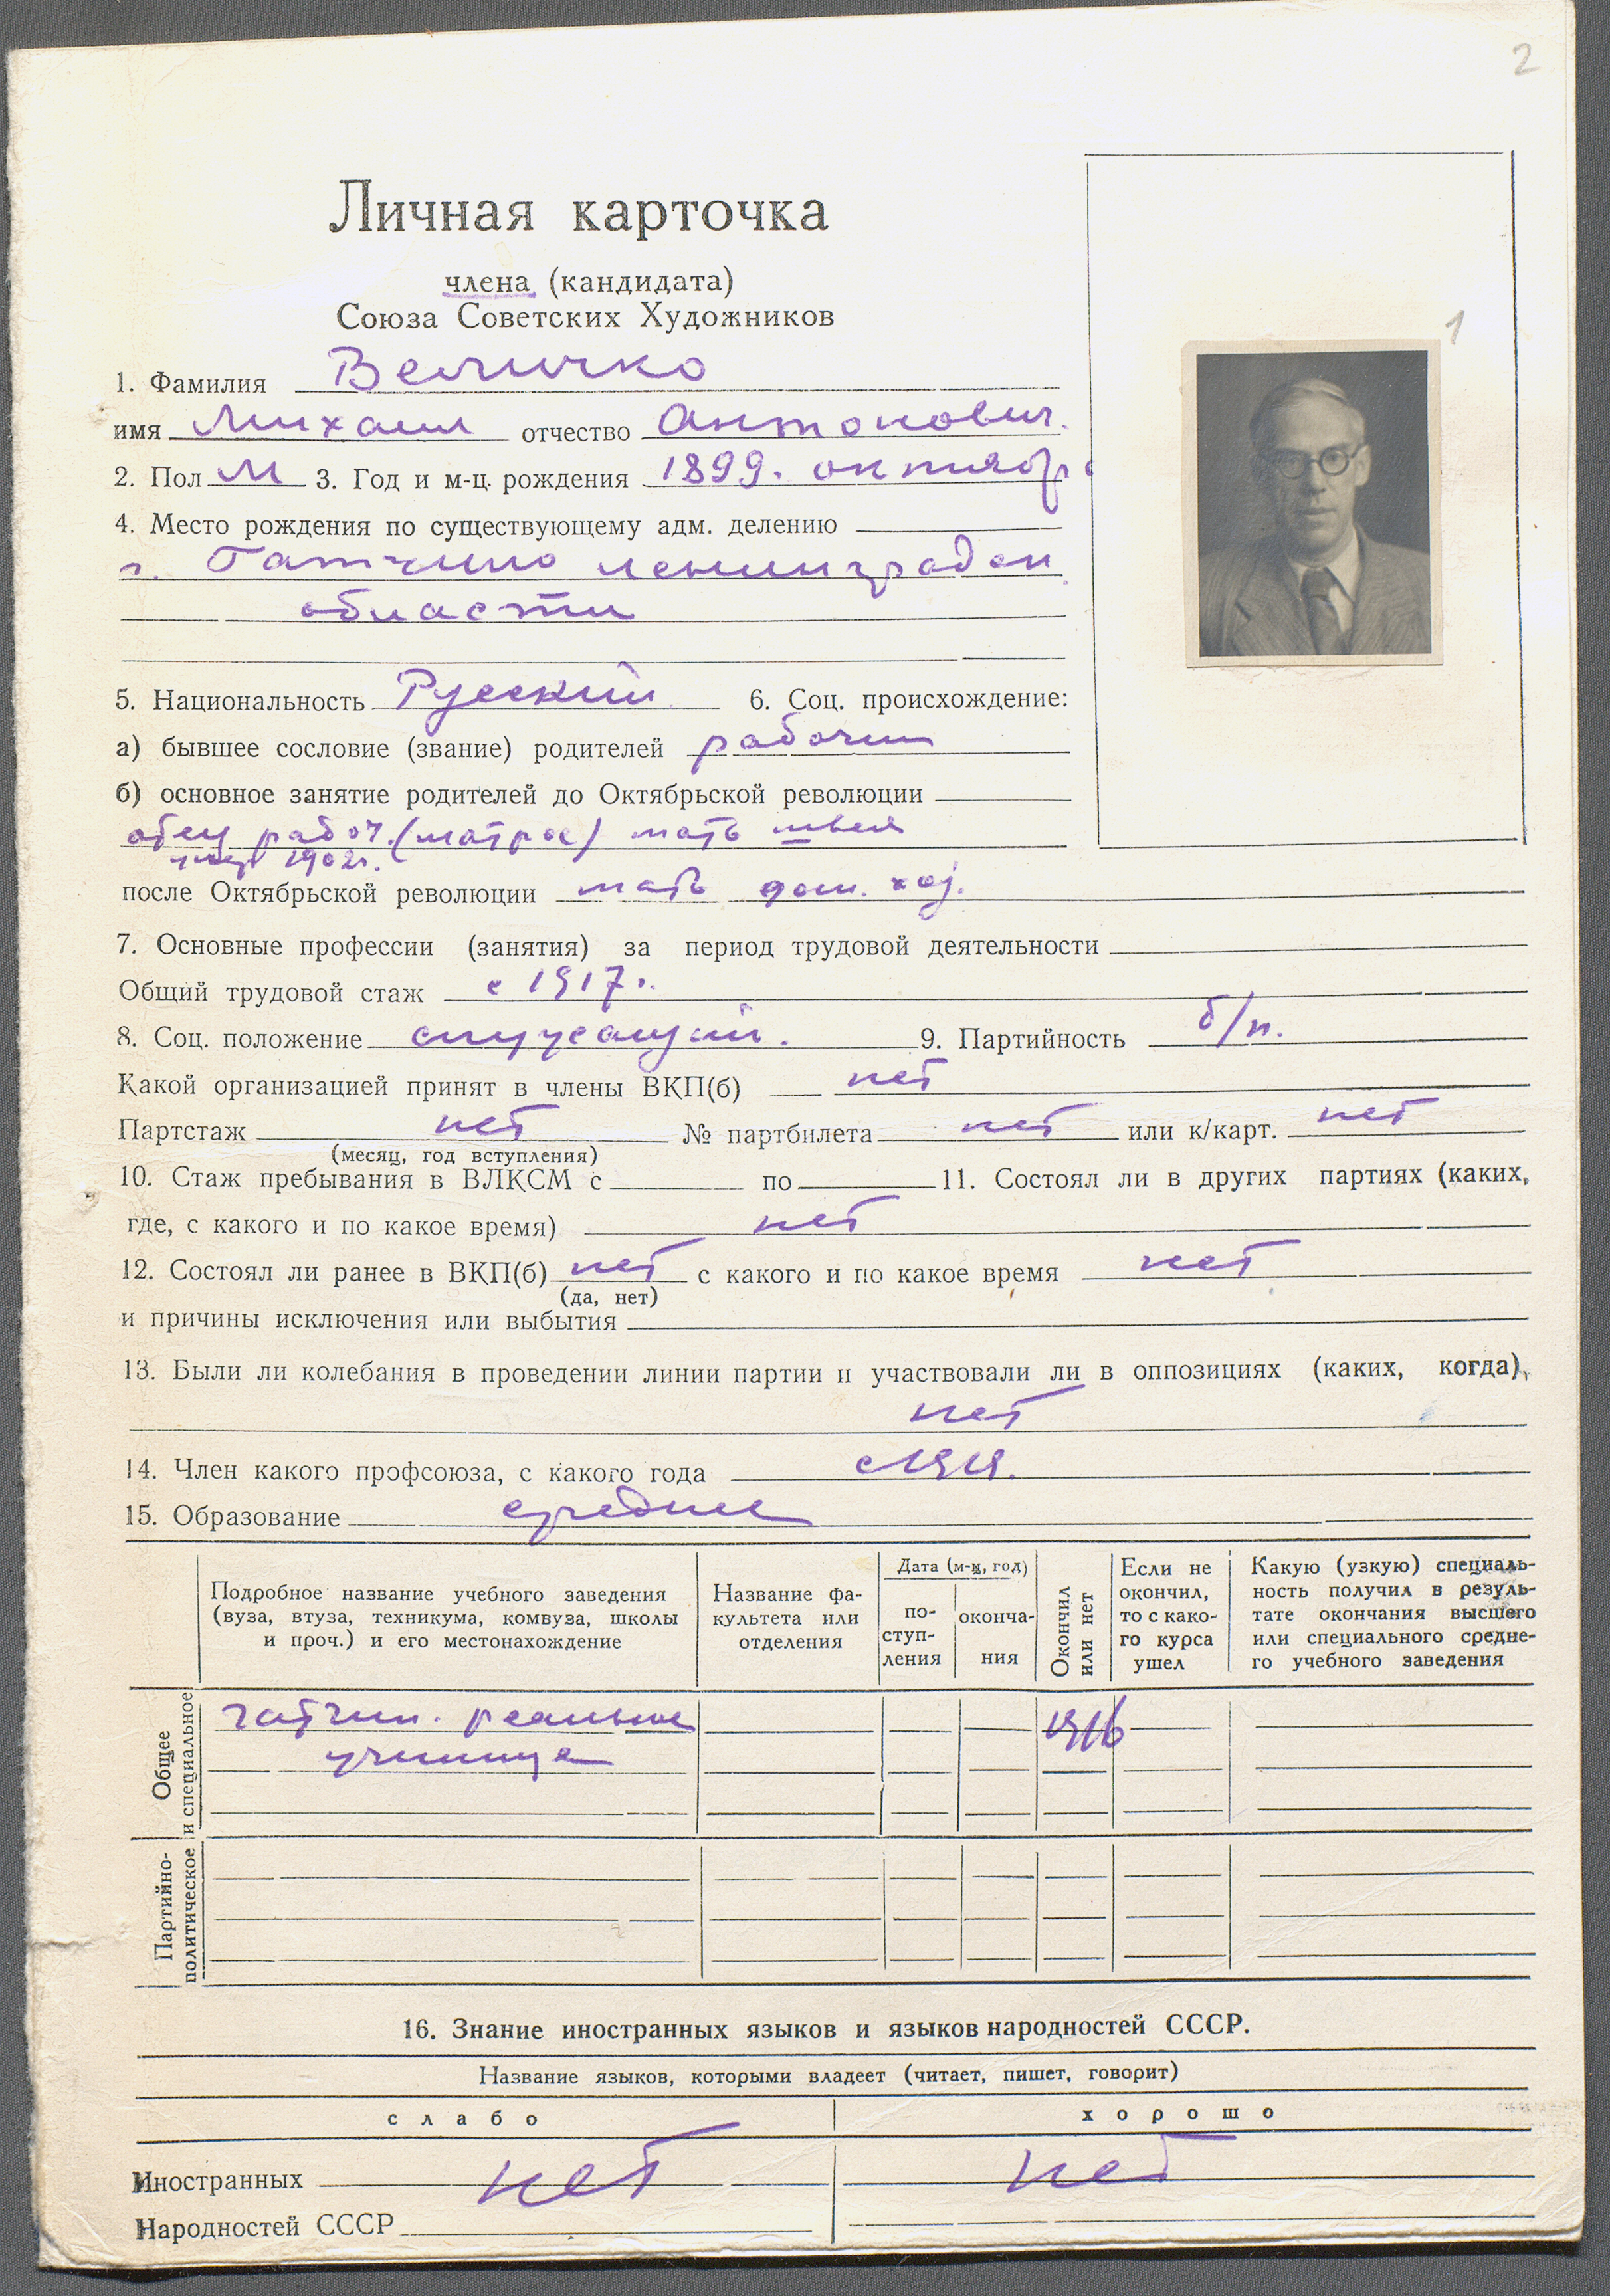 2
Личная карточка
члена (кандидата)
Союза Советских Художников
1
1. Фамилия Величко
имя Михаил отчество Антонович.
2. Пол М 3. Год и м-ц. рождения 1899. октябрь
4. Место рождения по существующему адм. делению
г. Гатчино ленинградск
области
5. Национальность Русский 6. Соц. происхождение:
а) бывшее сословие (звание) родителей рабочий
б) основное занятие родителей до Октябрьской революции
отец рабоч. (матрос) мать швея
1902г.
после Октябрьской революции мать дом. хоз.
7. Основные профессии (занятия) за период трудовой деятельности
Общий трудовой стаж с 1917г.
8. Соц. положение служащий. 9. Партийность б/п.
Какой организацией принят в члены ВКП(б) нет
Партстаж нет № партбилета нет или к/карт. нет
(месяц, год вступления)
10. Стаж пребывания в ВЛКСМ с по 11. Состоял ли в других партиях (каких,
где, с какого и по какое время) нет
12. Состоял ли ранее в ВКП(б) нет с какого и по какое время нет
(да, нет)
и причины исключения или выбытия
13. Были ли колебания в проведении линии партии и участвовали ли в оппозициях (каких, когда),
нет
14. Член какого профсоюза, с какого года с
15. Образование среднее
Подробное название учебного заведения (вуза, втуза, техникума, комвуза, школы и проч.) и его местонахождение
Название факультета или отделения
Дата (м-ц, год)
поступления
окончания
Окончил или нет
Если не окончил, то с какого курса ушел
Какую (узкую) специальность получил в результате окончания высшего или специального среднего учебного заведения
Общее и специальное
гатчин. реальное 1916
училище
Партийно-политическое
16. Знание иностранных языков и языков народностей СССР.
Название языков, которыми владеет (читает, пишет, говорит)
слабо хорошо
Иностранных нет нет
Народностей СССР